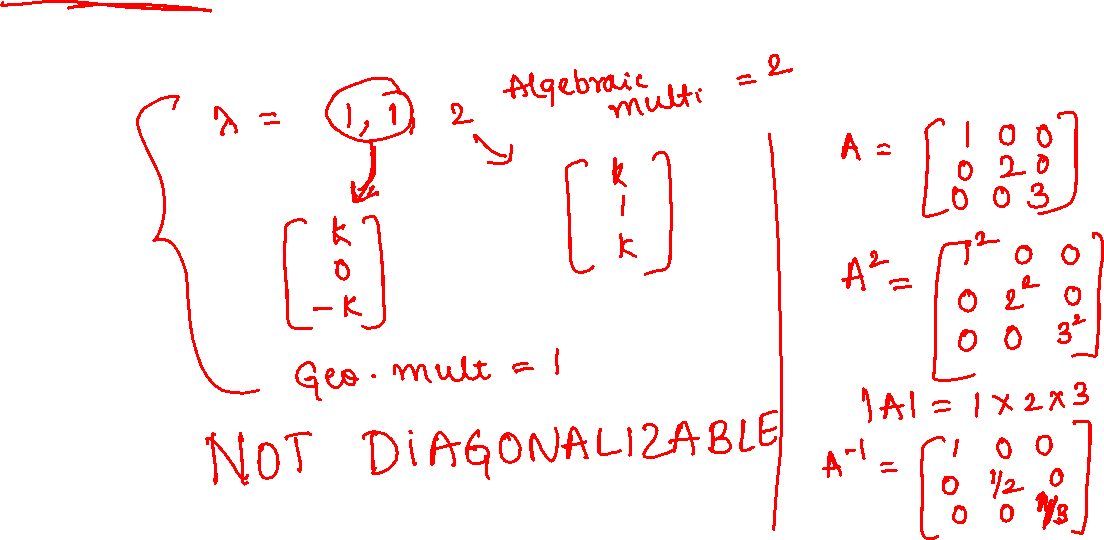 λ = 1, 1, 2
Algebraic multi = 2
[k 0 -k]
[k 1 k]
Geo. mult = 1
NOT DIAGONALIZABLE
A = [1 0 0
0 2 0
0 0 3]
A² = [1² 0 0
0 2² 0
0 0 3²]
|A| = 1 × 2 × 3
A⁻¹ = [1 0 0
0 1/2 0
0 0 1/3]